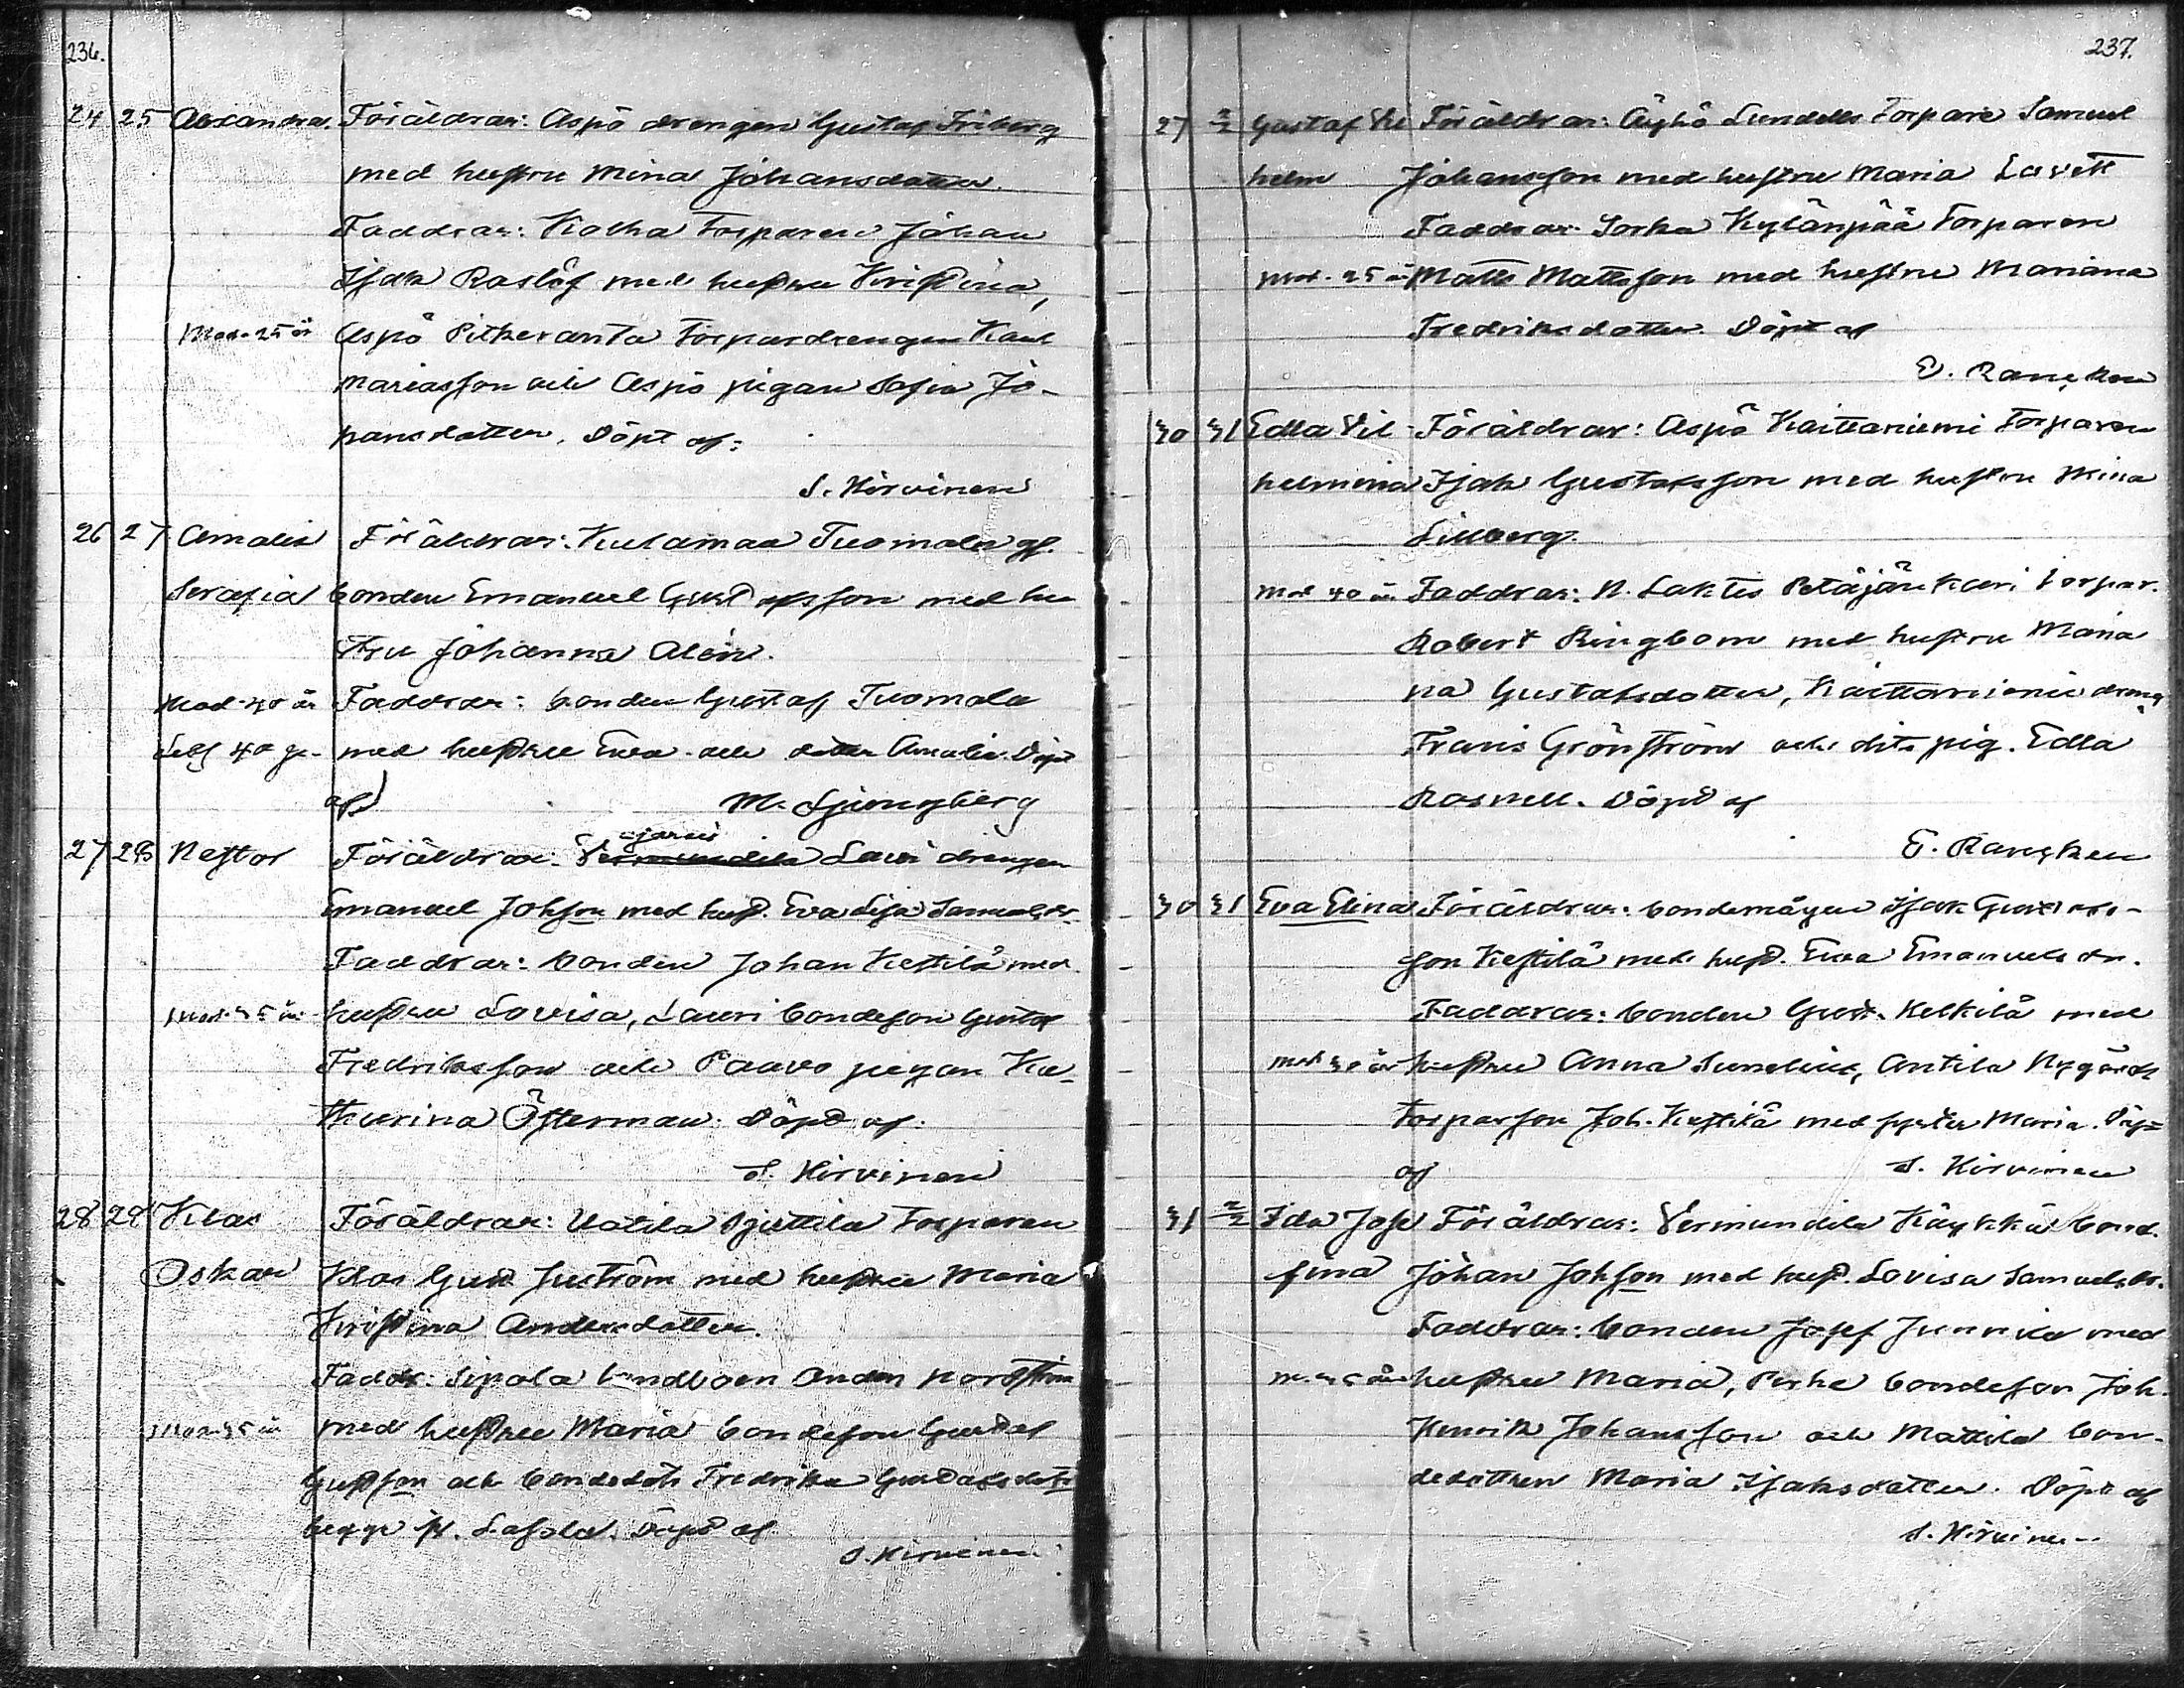 236.
24 25 Alexandra. Föräldrar: Aspö drengen Gustaf Friberg
med hustru Mina Johansdotter.
Faddrar: Kolha Torparen Johan
Isak Roslöf med hustru Kristina,
Mod. 25 år Aspö Pitkeranta Torpardrengen Karl
Mariasson och Aspö pigan Sofia Jo-
hansdotter. Döpt af:
S. Hirvinen
26 27 Amalia Föräldrar: Kulamaa Tuomola gf.
Serafia bonden Emanuel Gustafsson med hu
stru Johanna Alén.
Mod. 40 år Faddrar: bonden Gustaf Tuomola
med hustru Eva och dotter Amalia. Döpt
af M. Ljungberg
27 28 Nestor Föräldrar: Lauri drengen
Emanuel Johsson med hust. Eva Lisa Samuelsdr.
Faddrar: bonden Johan Kestilä med
hustru Lovisa, Lauri bondeson Gustaf
Fredriksson och Paavo pigan Ka-
tharina Österman. Döpt af.
S. Hirvinen
28 29 Klas Föräldrar: Uotila Sjuttila Torparen
Oskar Klas Gust Juström med hustru Maria
Kristina Andersdotter.
Faddr: Sipola landboen Anders Norström
Mod. 35 år med hustru Maria bondeson Gustaf
Gustsson och bondedotr Fredrika Gustafsdotr
begge fr. Lassila. Döpt af
S. Hirvinen
237.
27 2/2 Gustaf Vil Föräldrar: Äyhö Lundells Torpare Samuel
helm Johansson med hustru Maria Lovett
Faddrar: Sorka Kylänpää Torparen
Mod. 25 år Matts Mattsson med hustru Mariana
Fredriksdotter. Döpt af
E. Rancken
30 31 Edla Vil- Föräldrar: Aspö Kaittaniemi Torparen
helmina Isak Gustafsson med hustru Mina
Lillberg.
Mod 40 år Faddrar: N. Laktis Petäjänkari Torpar.
Robert Ringbom med hustru Maria
na Gustafsdotter, Kaittaniemi dreng
Frans Grönström och dito pig. Edla
Rosnell. Döpt af
E. Rancken
30 31 Eva Elina Föräldrar: bondemågen Isak Gustafs-
son Kestilä med hust. Eva Emanuels dr.
Faddrar: bonden Gust. Kelkilä med
Mod 30 år hustru Anna Sunelius, Antila Nygårds
Torparson Joh. Kestilä med syster Maria. Döpt
af S. Hirvinen
31 2/2 Ida Jose Föräldrar: Vermundila Käykkä bond.
fina Johan Johsson med hust. Lovisa Samuelsdr.
Faddrar: bonden Josef Junnila med
hustru Maria, Perhe bondeson Joh.
Henrik Johansson och Mattila bon-
dedottren Maria Isaksdotter. Döpt af
S. Hirvinen